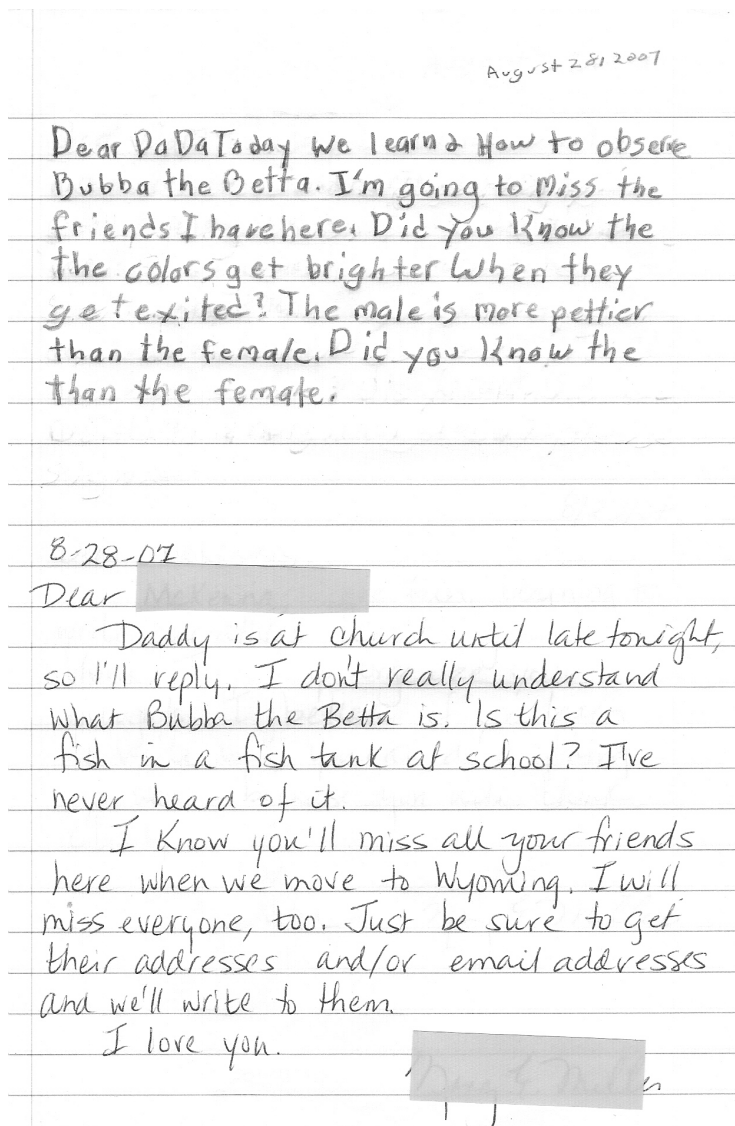 August 28, 2007
Dear DaDa Today we learnd How to observe
Bubba the Betta. I'm going to Miss the
friends I have here. Did you Know the
the colors get brighter When they
get exited? The male is more pettier
than the female. Did you Know the
than the female.
8-28-07
Dear
Daddy is at church until late tonight,
so I'll reply. I don't really understand
what Bubba the Betta is. Is this a
fish in a fish tank at school? I've
never heard of it.
I know you'll miss all your friends
here when we move to Wyoming. I will
miss everyone, too. Just be sure to get
their addresses and/or email addresses
and we'll write to them.
I love you.